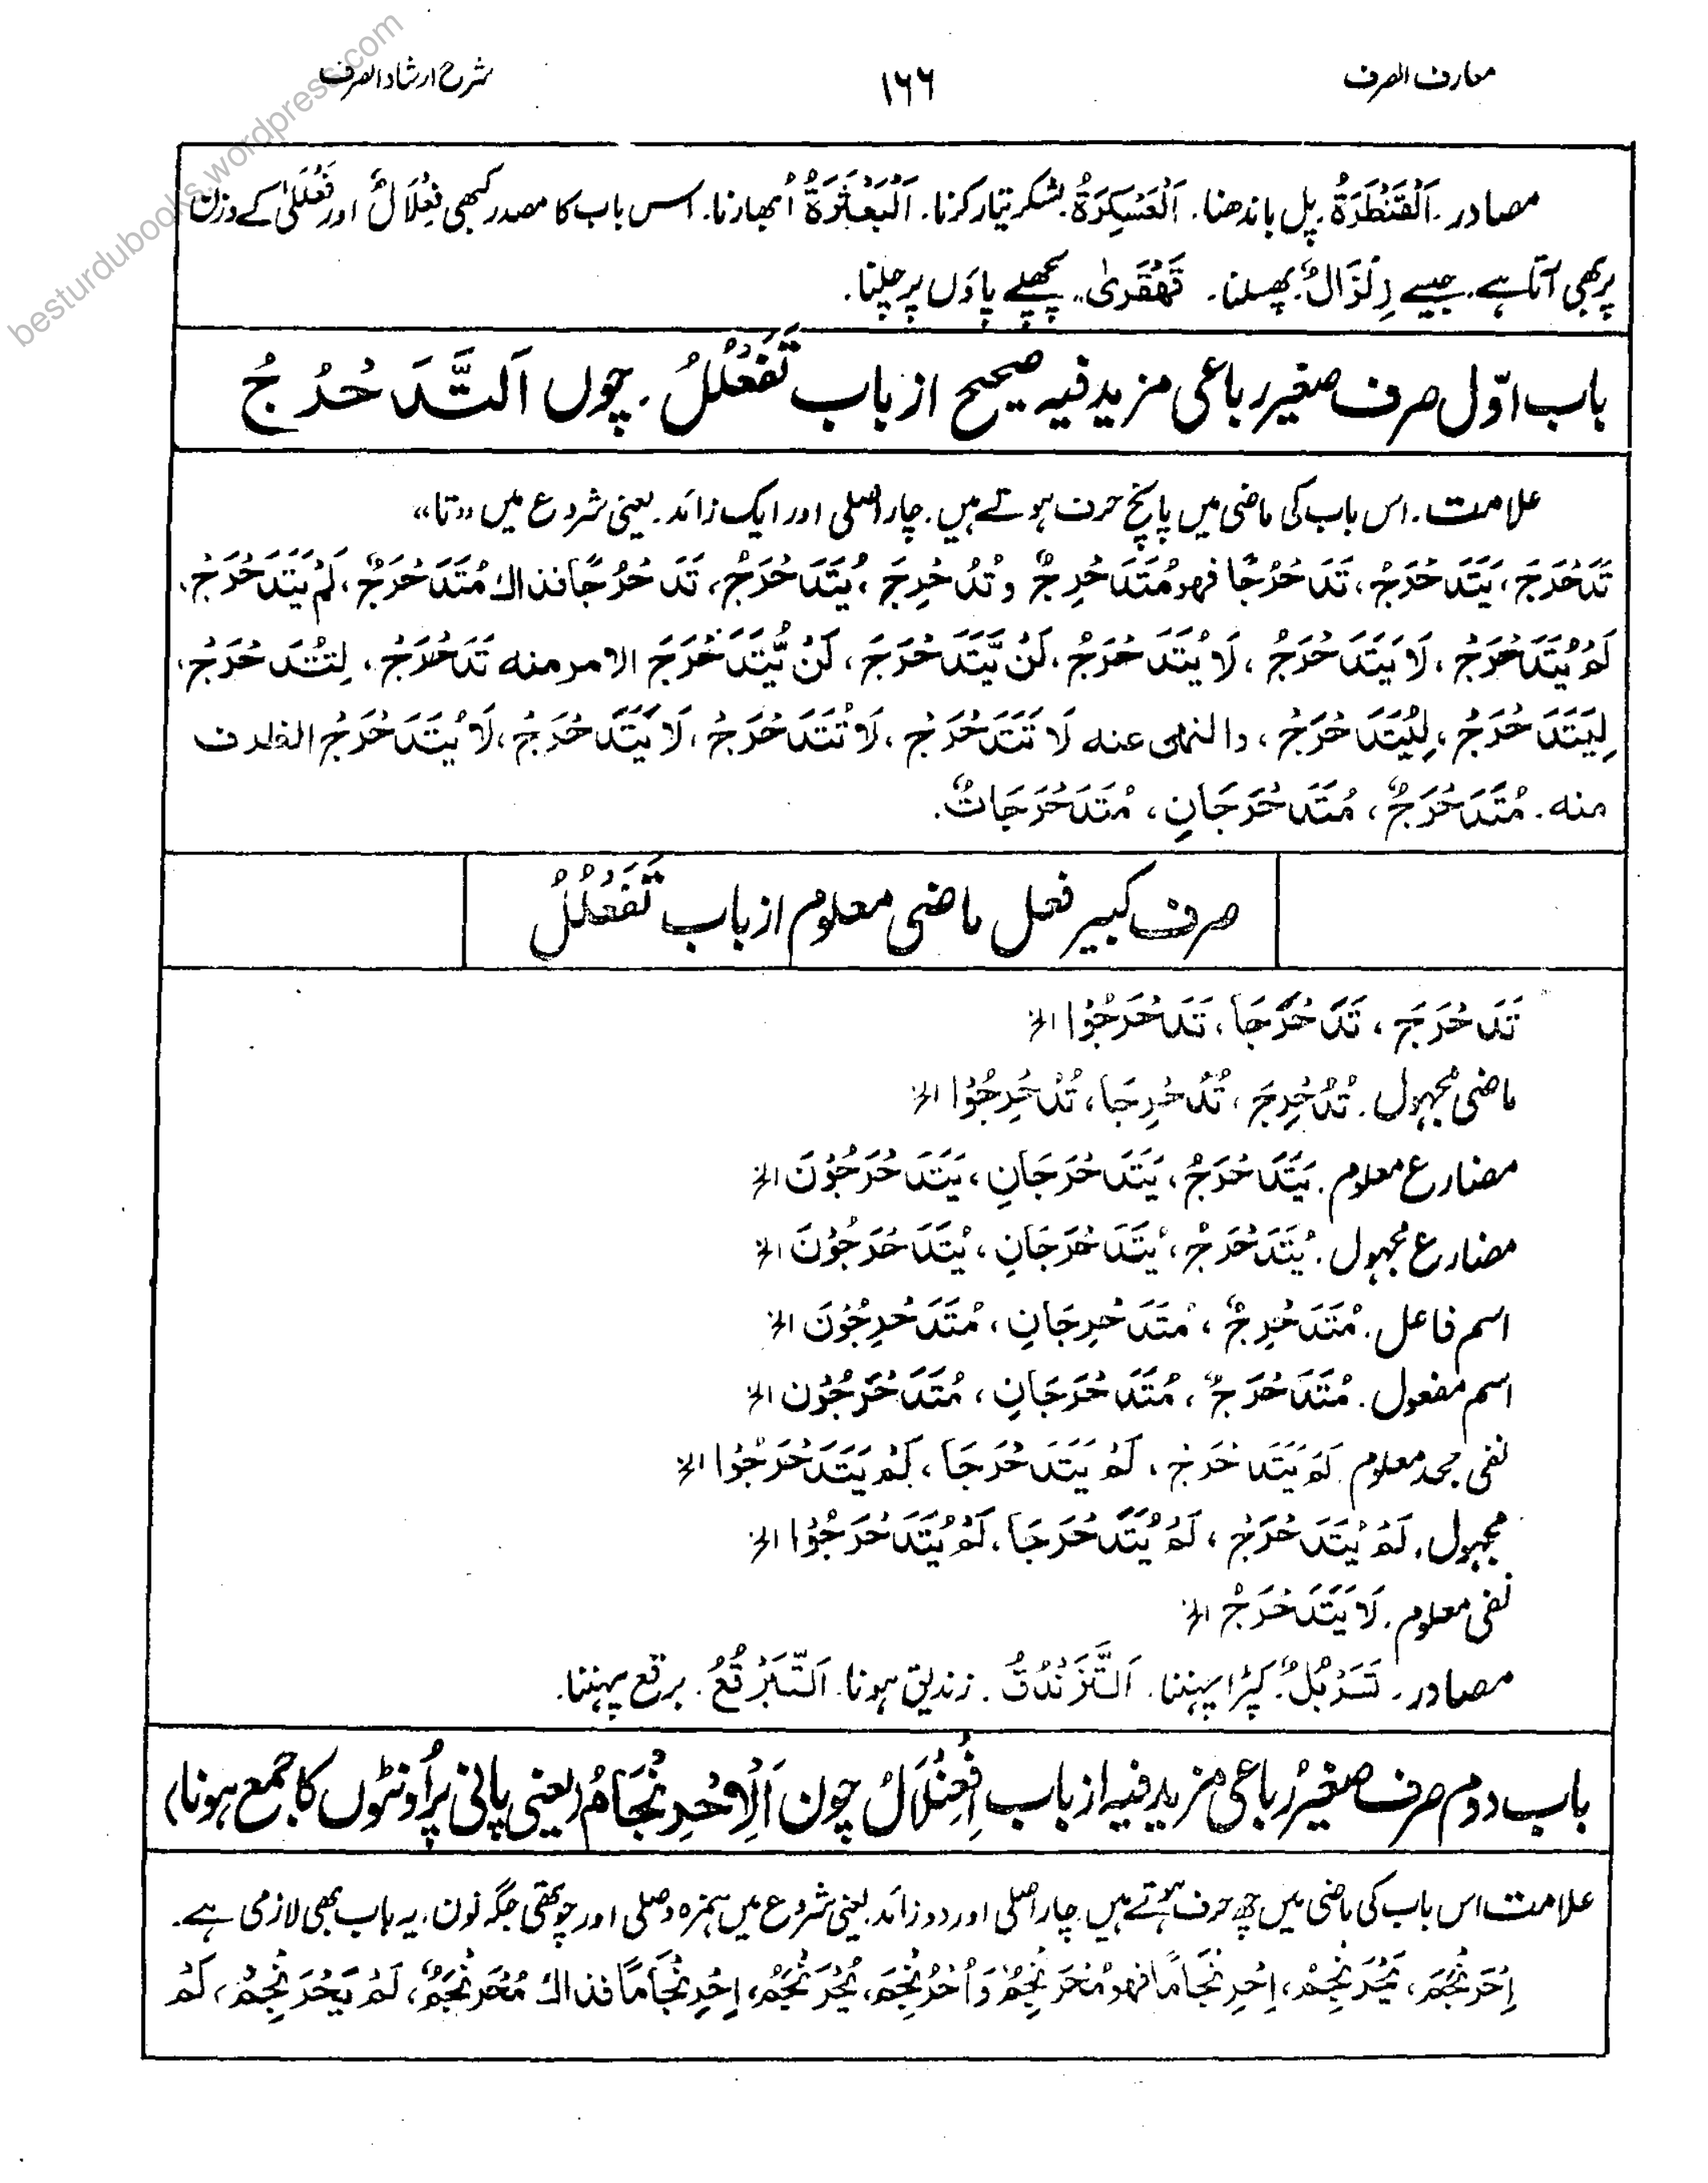 معارف الصرف ۱۶۶ شرح ارشاد الصرف
besturdubooks.wordpress.com
مصادر۔ اَلْقَنْطَرَةُ۔ پل باندھنا۔ اَلْعَسْكَرَةُ۔ لشکر تیار کرنا۔ اَلْبَعْثَرَةُ اُبھارنا۔ اس باب کا مصدر کبھی فِعْلَالٌ اور فَعْلَلٰی کے وزن
پر بھی آتا ہے۔ جیسے زِلْزَالٌ۔ پھسلنا۔ قَهْقَرٰی۔ پچھلے پاؤں پر چلنا۔
باب اوّل صرف صغیر رباعی مزید فیہ صحیح از باب تَفَعْلُلُ۔ چوں اَلتَّدَحْرُجُ
علامت۔ اس باب کی ماضی میں پانچ حرف ہوتے ہیں۔ چار اصلی اور ایک زائد۔ یعنی شروع میں ،،تا،،
تَدَحْرَجَ، يَتَدَحْرَجُ، تَدَحْرُجًا فهو مُتَدَحْرِجٌ و تُدُحْرِجَ، يُتَدَحْرَجُ، تَدَحْرُجًا فذاك مُتَدَحْرَجٌ، لَمْ يَتَدَحْرَجْ،
لَمْ يُتَدَحْرَجْ، لَا يَتَدَحْرَجُ، لَا يُتَدَحْرَجُ، لَنْ يَّتَدَحْرَجَ، لَنْ يُّتَدَحْرَجَ الامر منه تَدَحْرَجْ، لِتُتَدَحْرَجْ،
لِيَتَدَحْرَجْ، لِيُتَدَحْرَجْ، والنهى عنه لَا تَتَدَحْرَجْ، لَا تُتَدَحْرَجْ، لَا يَتَدَحْرَجْ، لَا يُتَدَحْرَجْ الظرف
منه۔ مُتَدَحْرَجٌ، مُتَدَحْرَجَانِ، مُتَدَحْرَجَاتٌ۔
صرف کبیر فعل ماضی معلوم از باب تَفَعْلُلُ
تَدَحْرَجَ، تَدَحْرَجَا، تَدَحْرَجُوْا الخ
ماضی مجہول۔ تُدُحْرِجَ، تُدُحْرِجَا، تُدُحْرِجُوْا الخ
مضارع معلوم۔ يَتَدَحْرَجُ، يَتَدَحْرَجَانِ، يَتَدَحْرَجُوْنَ الخ
مضارع مجہول۔ يُتَدَحْرَجُ، يُتَدَحْرَجَانِ، يُتَدَحْرَجُوْنَ الخ
اسم فاعل۔ مُتَدَحْرِجٌ، مُتَدَحْرِجَانِ، مُتَدَحْرِجُوْنَ الخ
اسم مفعول۔ مُتَدَحْرَجٌ، مُتَدَحْرَجَانِ، مُتَدَحْرَجُوْن الخ
نفی جحد معلوم۔ لَمْ يَتَدَحْرَجْ، لَمْ يَتَدَحْرَجَا، لَمْ يَتَدَحْرَجُوْا الخ
مجہول۔ لَمْ يُتَدَحْرَجْ، لَمْ يُتَدَحْرَجَا، لَمْ يُتَدَحْرَجُوْا الخ
نفی معلوم۔ لَا يَتَدَحْرَجُ الخ
مصادر۔ تَسَرْبُلٌ۔ کپڑا پہننا۔ اَلتَّزَنْدُقُ۔ زندیق ہونا۔ اَلتَّبَرْقُعُ۔ برقع پہننا۔
باب دوم صرف صغیر رُباعی مزید فیہ از باب اِفْعِنْلَالُ چون اَلْاِحْرِنْجَامُ (یعنی پانی پر اُونٹوں کا جمع ہونا)
علامت اس باب کی ماضی میں چھ حرف ہوتے ہیں۔ چار اصلی اور دو زائد۔ یعنی شروع میں ہمزہ وصلی اور چوتھی جگہ نون۔ یہ باب بھی لازمی ہے۔
اِحْرَنْجَمَ، يَحْرَنْجِمُ، اِحْرِنْجَامًا فهو مُحْرَنْجِمٌ وَ اُحْرُنْجِمَ، يُحْرَنْجَمُ، اِحْرِنْجَامًا فذاك مُحْرَنْجَمٌ، لَمْ يَحْرَنْجِمْ، لَمْ